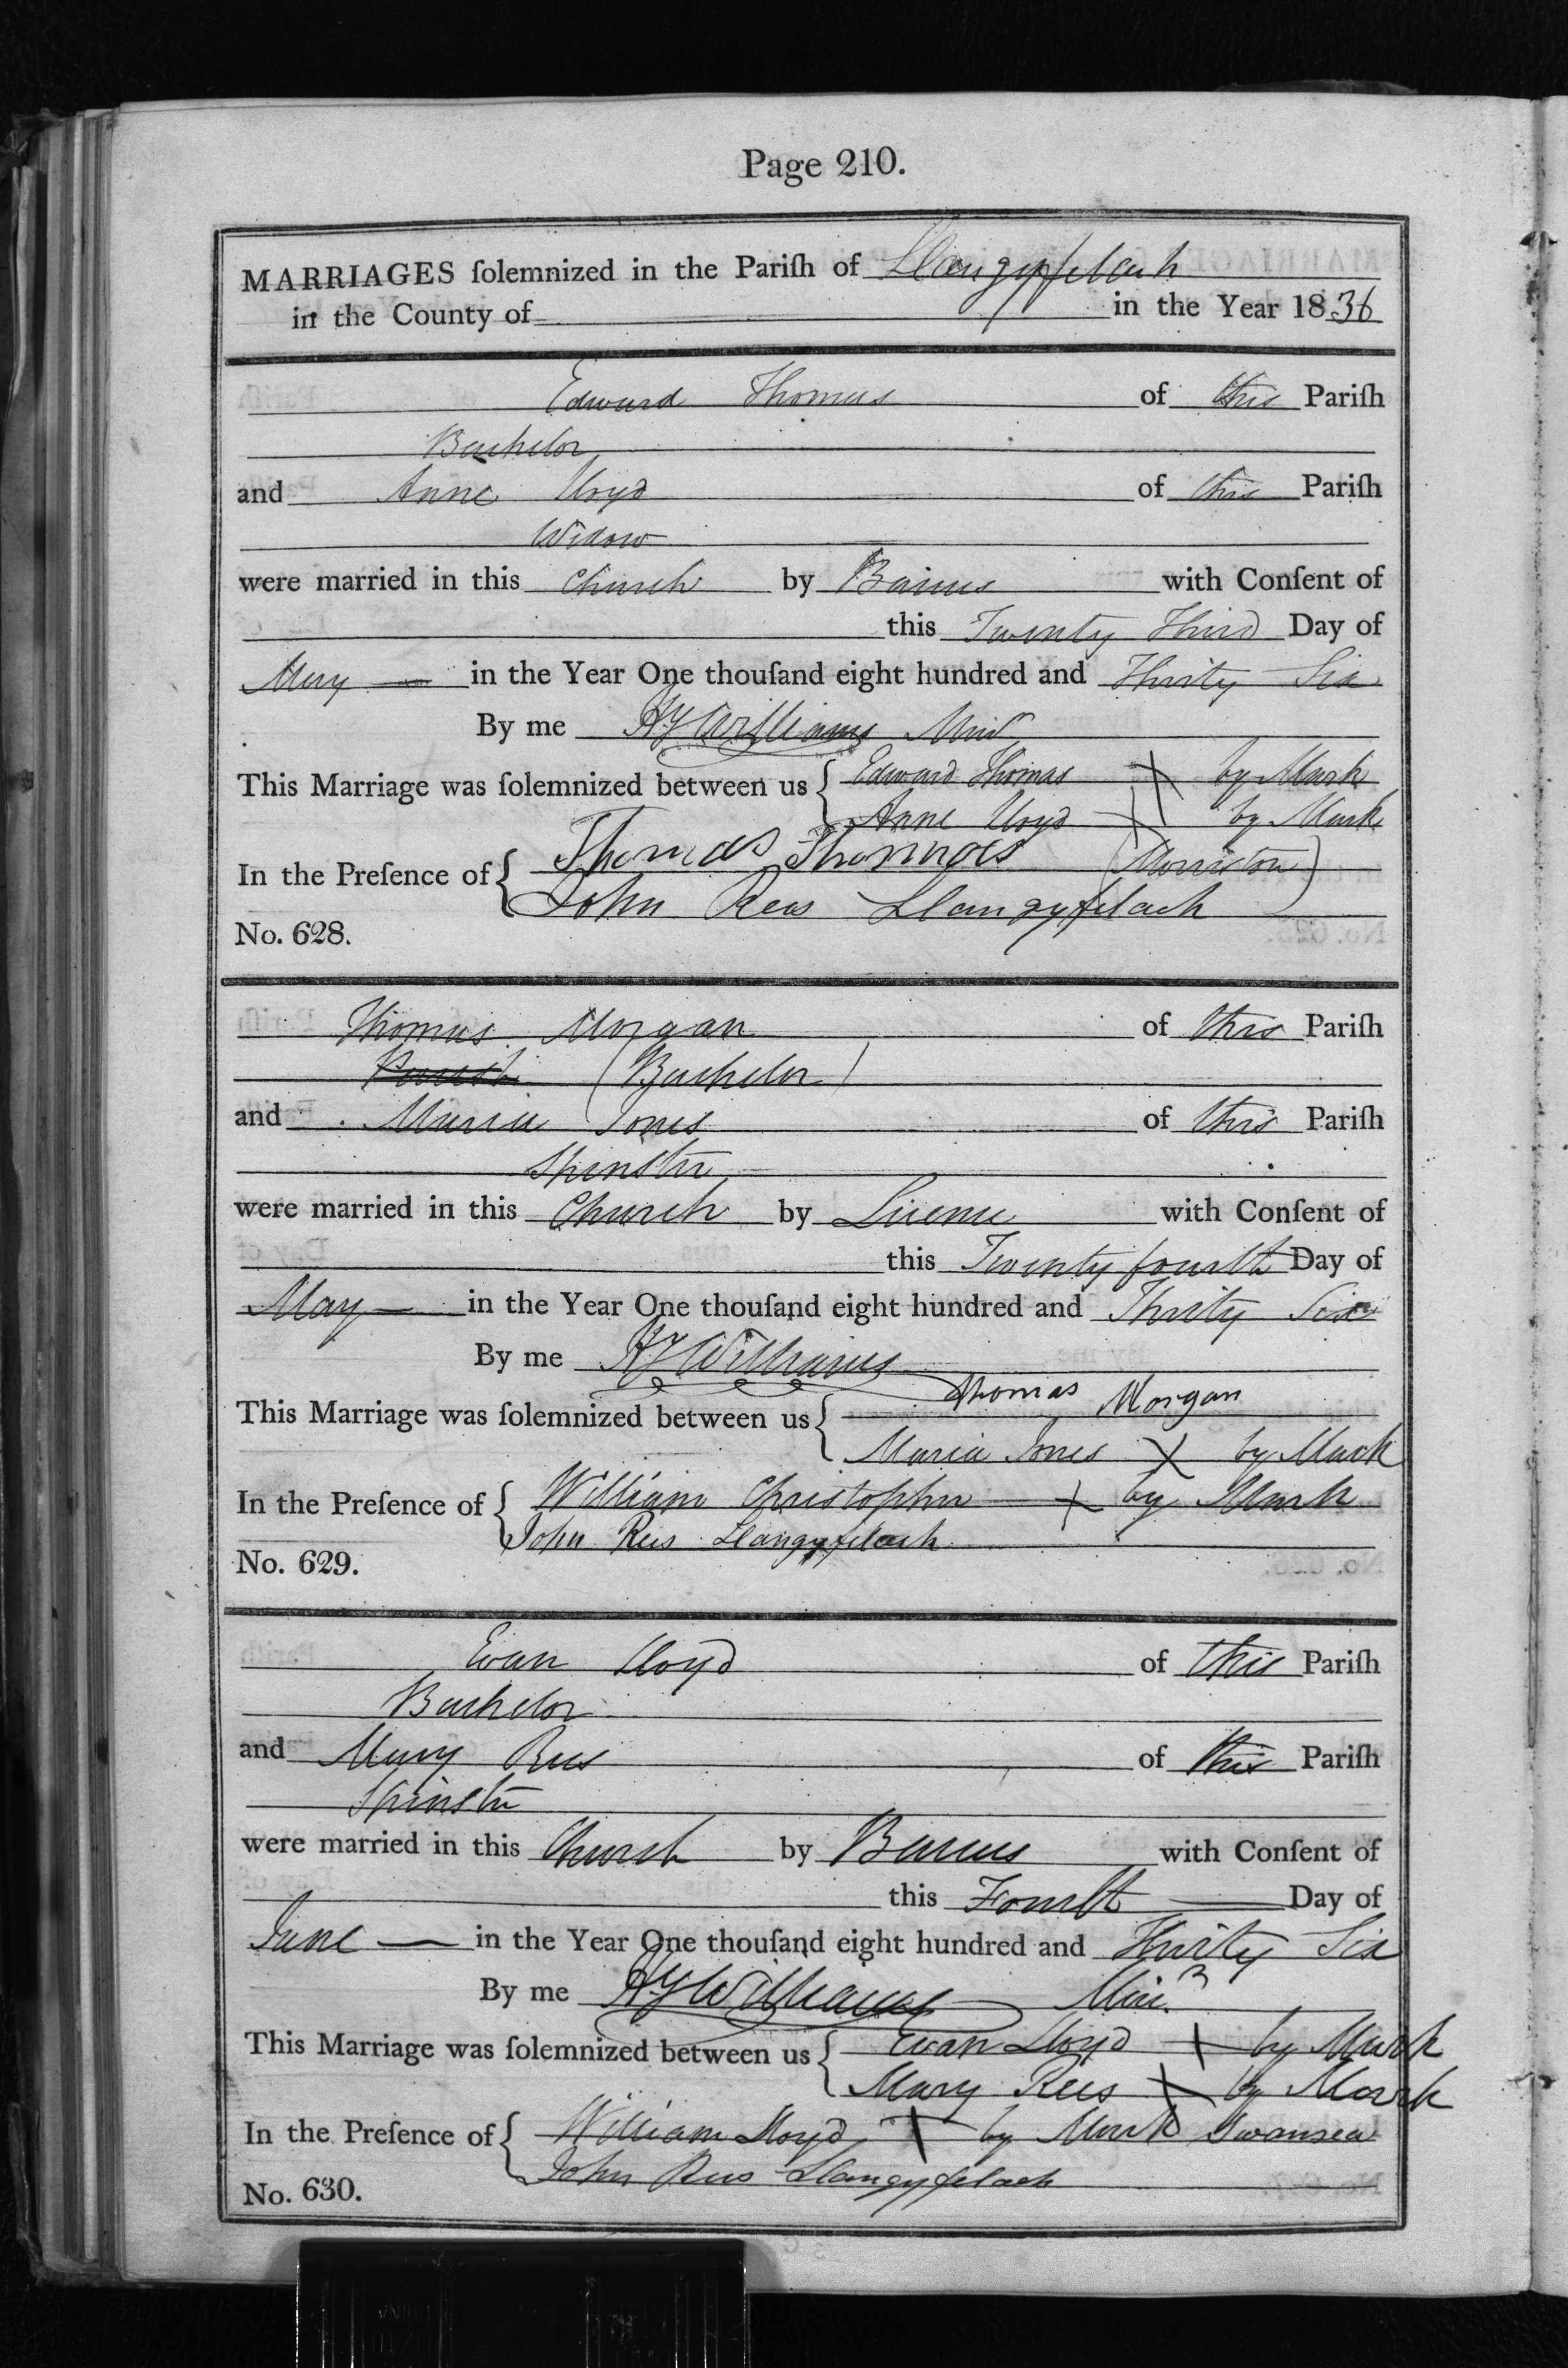 Page 210.
MARRIAGES ſolemnized in the Pariſh of Llangyfelach
in the County of in the Year 1836
Edward Thomas of this Pariſh
Bachelor
and Anne Lloyd of this Pariſh
Widow
were married in this Church by Banns with Conſent of
this Twenty Third Day of
May — in the Year One thouſand eight hundred and Thirty Six
By me Hy Williams Minr
This Marriage was ſolemnized between us { Edward Thomas X by Mark
Anne Lloyd X by Mark
In the Preſence of { Thomas Thomas (Morriston)
John Rees Llangyfelach
No. 628.
Thomas Morgan of this Pariſh
(Bachelor)
and Maria Jones of this Pariſh
Spinster
were married in this Church by Licence with Conſent of
this Twenty fourth Day of
May — in the Year One thouſand eight hundred and Thirty Six
By me Hy Williams
This Marriage was ſolemnized between us { Thomas Morgan
Maria Jones X by Mark
In the Preſence of { William Christopher X by Mark
John Rees Llangyfelach
No. 629.
Evan Lloyd of this Pariſh
Bachelor
and Mary Rees of this Pariſh
Spinster
were married in this Church by Banns with Conſent of
this Fourth — Day of
June — in the Year One thouſand eight hundred and Thirty Six
By me Hy Williams Minr
This Marriage was ſolemnized between us { Evan Lloyd X by Mark
Mary Rees X by Mark
In the Preſence of { William Lloyd X by Mark Swansea
John Rees Llangyfelach
No. 630.